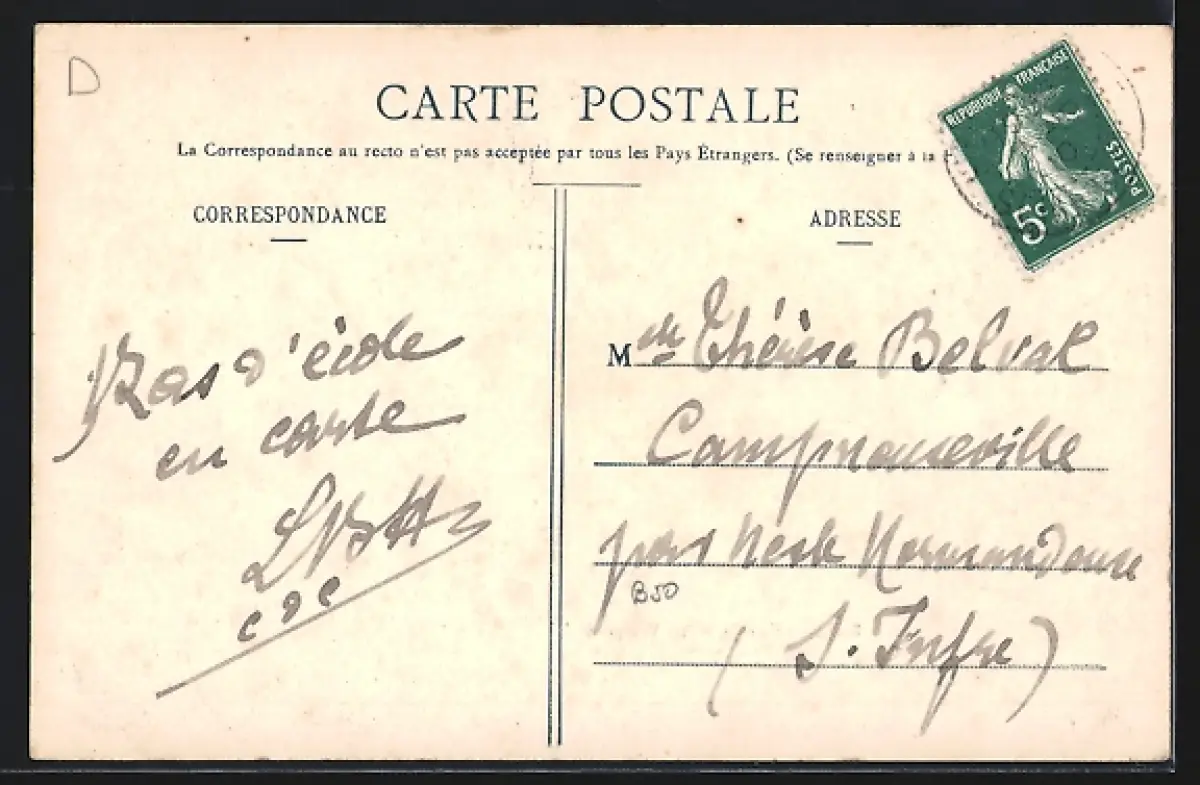 D
CARTE POSTALE
La Correspondance au recto n'est pas acceptée par tous les Pays Étrangers. (Se renseigner à la
RÉPUBLIQUE FRANÇAISE
POSTES
5c
CORRESPONDANCE
ADRESSE
d'école
en carte
Melle Thérèse Belval
Campneuseville
par Nesle Normandeuse
B50
(S. Infre)